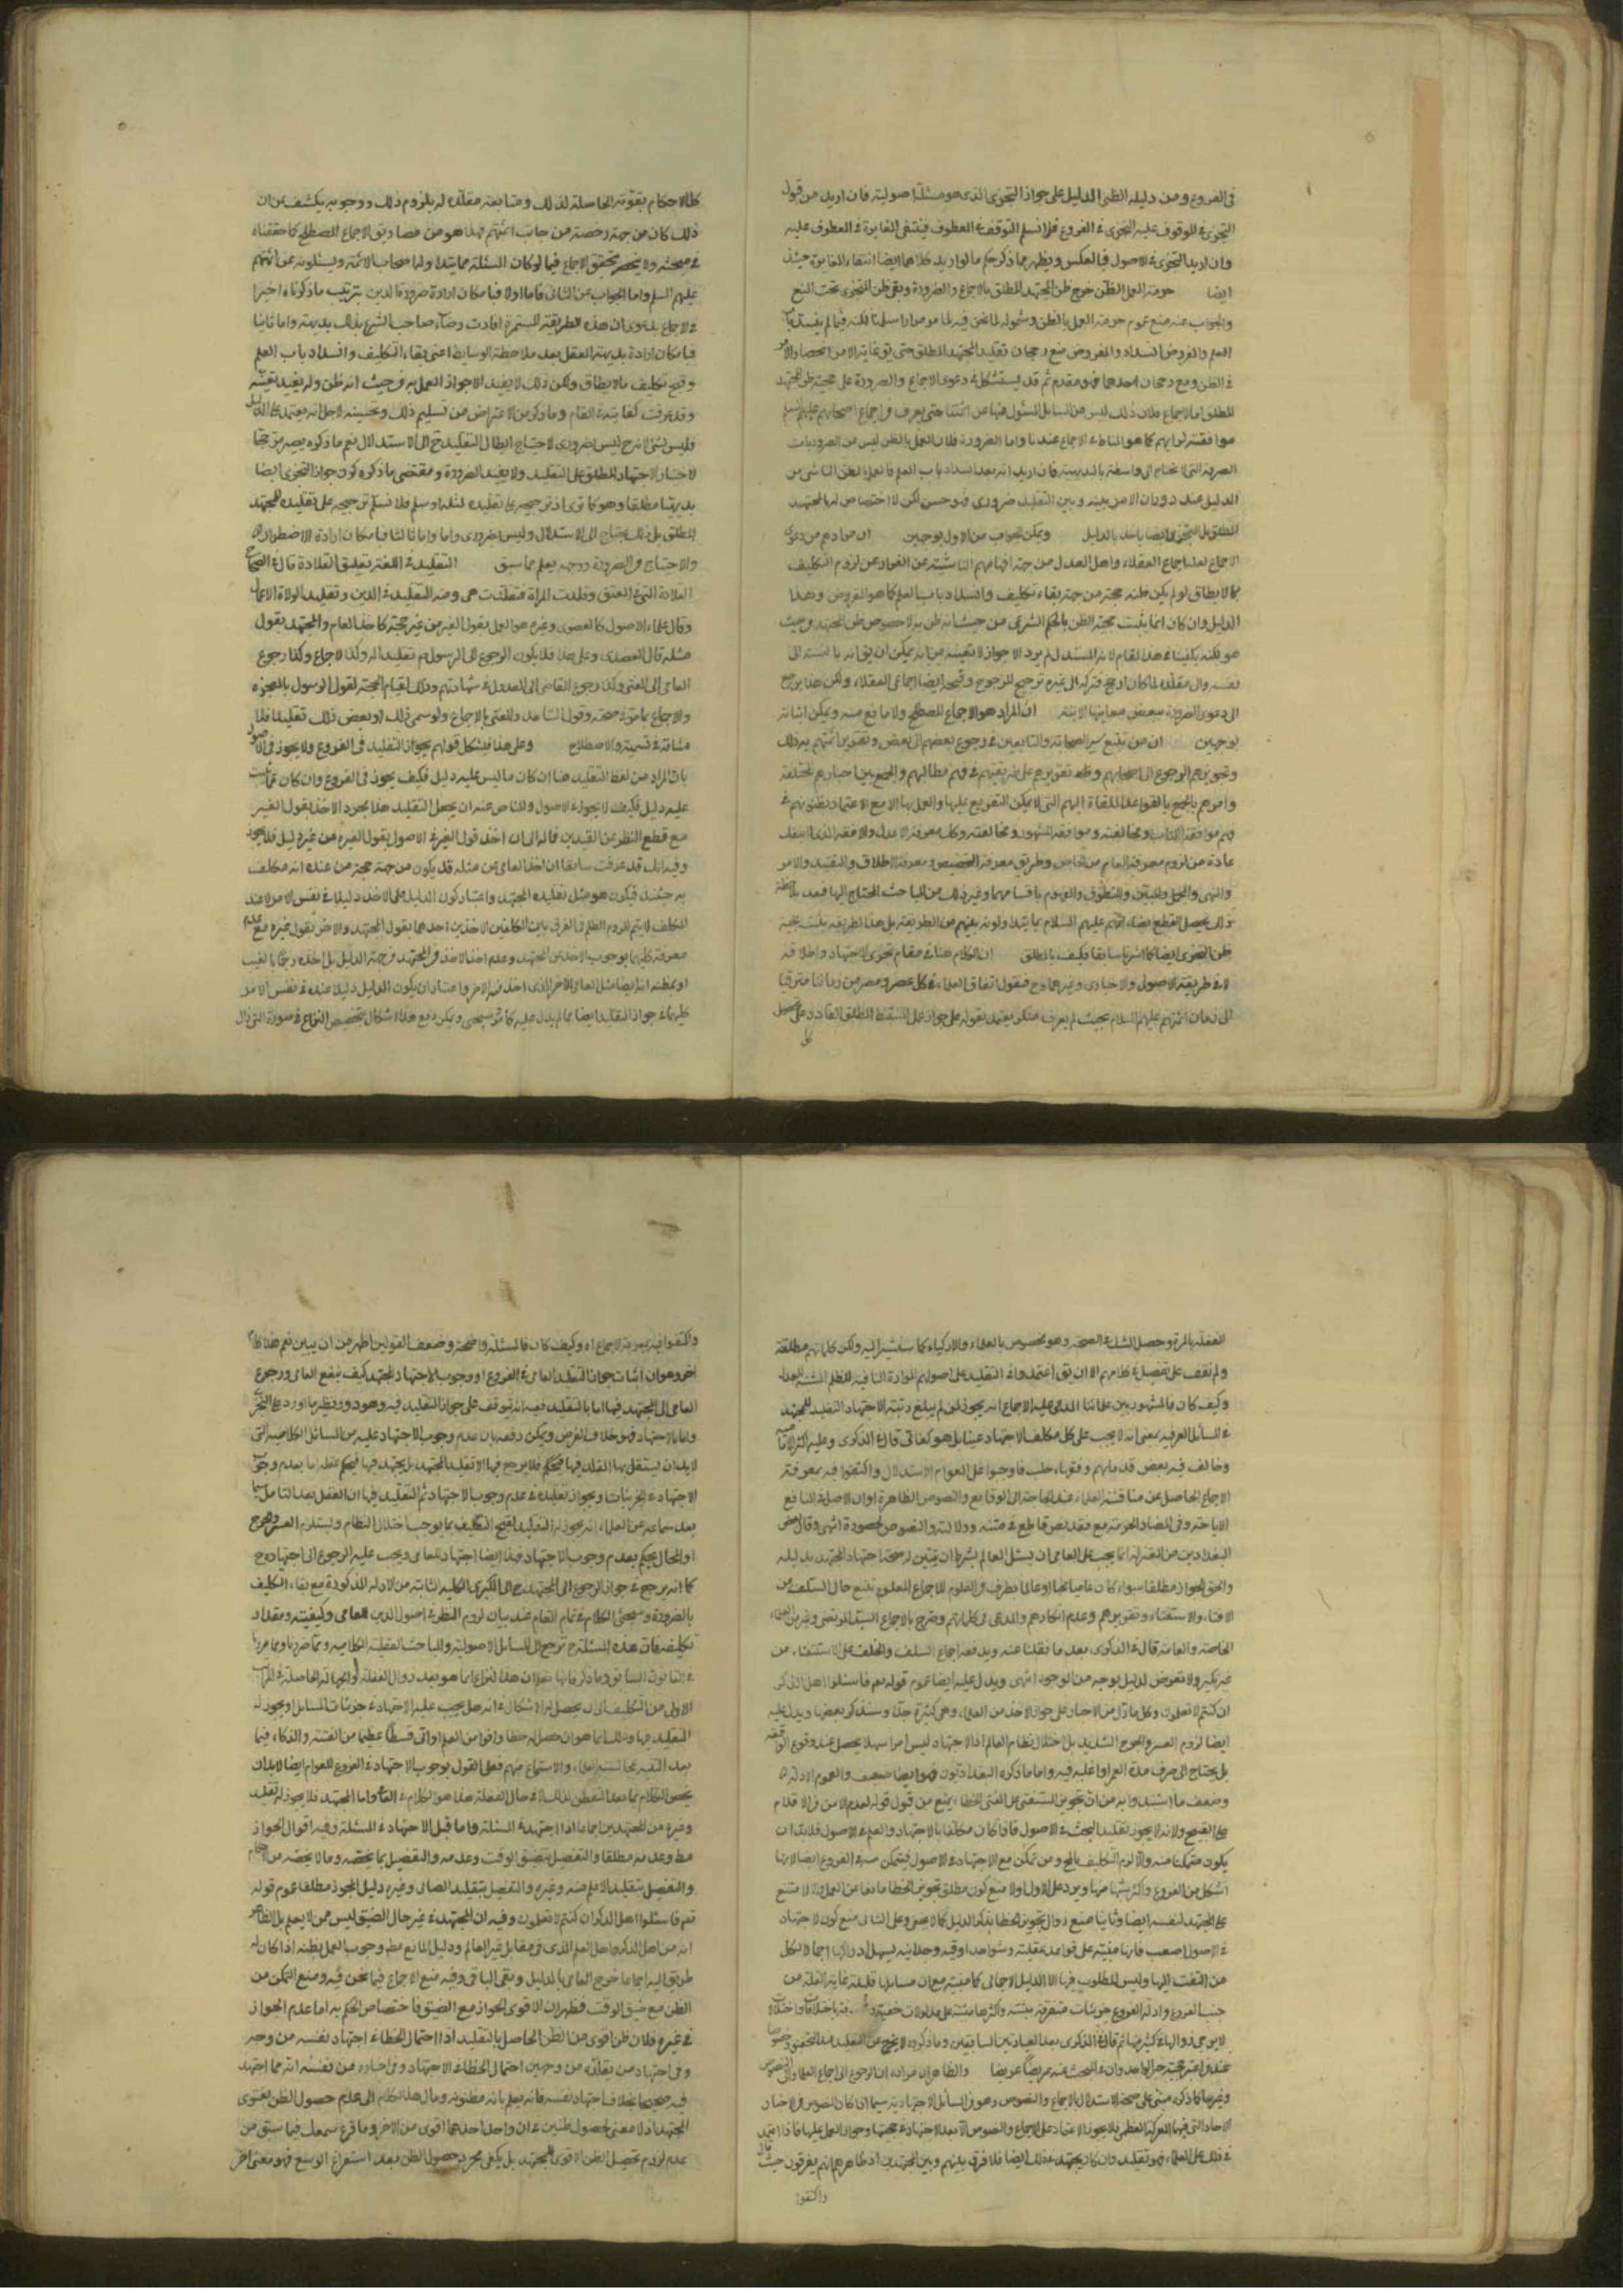 فى الفروع ومن دليله الظن الدليل على جواز التجزى الذى هو مسئلة اصولية فان اريد من قول
التجزى فى الموقوف عليه التجزى فى الفروع فلا نسلم التوقف فى المعطوف فينتفى المغايرة فى المعطوف عليه
وان اريد التجزى فى الاصول فبالعكس ويظهر مما ذكر حكم ما لو اريد كلاهما ايضا انتفاء المغايرة حينئذ
ايضا حرمة العمل بالظن خرج ظن المجتهد المطلق بالاجماع والضرورة وبقى ظن المتجزى تحت المنع
والجواب عنه منع عموم حرمة العمل بالظن وشموله لما نحن فيه لما مر مرارا سلمنا لكنه فيما لم ينسد باب
العلم والمفروض انسداده والمفروض منع رجحان تقليد المجتهد المطلق حتى يق بغاية الامر انحصار الامر
فى الظن ومع رجحان احدهما فهو مقدم ثم قد يستشكل فى دعوى الاجماع والضرورة على حجية ظن المجتهد
المطلق اما الاجماع فلان ذلك ليس من المسايل المسئول عنها عن ائمتنا حتى يعرف من اجماع اصحابهم عليهم السلم
موافقته لرايهم كما هو المناط فى الاجماع عندنا واما الضرورة فلان العمل بالظن ليس من الضروريات
الدليل عند دوران الامر بينه وبين التقليد ضرورى فهو حسن لكن لا اختصاص له بالمجتهد
المطلق بل المتجزى ايضا ياخذ بالدليل ويمكن الجواب من الاول بوجهين ان مرادهم من دعوى
الاجماع لعله اجماع العقلاء واهل العدل من جهة افهامهم الناشئة عن الفرار عن لزوم التكليف
بما لا يطاق لو لم يكن ظنه حجة من جهة بقاء تكليف وانسداد باب العلم كما هو المفروض وهذا
الدليل وان كان انما يثبت حجية الظن بالحكم الشرعى من حيث انه ظن به لا خصوص ظن المجتهد من حيث
هو لكنه يكفينا فى هذا المقام لان المستدل لم يرد الا جواز لا تعيينه من انه يمكن ان يق انه بالنسبة الى
نفسه والى مقلده لما كان ارجح فتركه الى غيره ترجيح للمرجوح وقبحه ايضا اجماعى العقلاء ولكن هذا يرجع
الى دعوى الضرورة ببعض معانيها الاتية ان المراد هو الاجماع المصطلح ولا مانع منه ويمكن اثباته
بوجهين ان من تتبع سير الصحابة والتابعين فى رجوع بعضهم الى بعض وتقرير ائمتهم بذلك
وتجويزهم الرجوع الى اصحابهم وتقريرهم على طريقتهم فى فهم مطالبهم والجمع بين اخبارهم المختلفة
وامرهم بالجمع بالقواعد الملقاة اليهم التى لا يمكن التفريع عليها والعمل بها الا مع الاعتماد بظنونهم فى
فهم موافقة الكتاب ومخالفته وموافقة المشهور ومخالفته وكك معرفة الاعدل والافقه
عادة من لزوم معرفة العام من الخاص وطريق معرفة التخصيص ومعرفة الاطلاق والتقييد والامر
والنهى والمجمل والمبين والمنطوق والمفهوم باقسامهما وغير ذلك من المباحث المحتاج اليها فبعد ملاحظة
ذلك يحصل القطع برضاء ائمتهم عليهم السلام بما يتداولونه بينهم من الطريقة بل هذا الطريقة يثبت حجية
ظن المتجزى ايضا كما اشرنا سابقا فكيف بالمطلق ان الكلام هنا فى مقام تجزى الاجتهاد واطلاقه
لا فى طريقة الاصولى والاخبارى وغيرهما وح فنقول اتفاق العلماء فى كل عصر ومصر من زماننا مترقيا
الى زمان ائمتهم عليهم السلام بحيث لم يعرف منكر يعتمد بقوله على جواز عمل المستنبط المطلق القادر على تحصيل
كل
كل الاحكام بقوته الحاصلة لذلك ومتابعة مقلده له بلزوم ذلك ووجوبه يكشف عن ان
ذلك كان من جهة رخصة من جانب ائمتهم فهذا هو من مصاديق الاجماع المصطلح كما حققناه
فى مبحثه ولا ينحصر تحقق الاجماع فيما لو كان المسئلة مما يتداولها اصحاب الائمة ويسئلونه عن ائمتهم
عليهم السلم واما الجواب عن الثانى فاما اولا فبامكان ارادة ضرورة الدين بترتيب ما ذكرناه اخيرا
فى الاجماع بدعوى ان هذه الطريقة المستمرة افادت رضاء صاحب الشرع بذلك بديهة واما ثانيا
فبامكان ارادة بديهة العقل بعد ملاحظة الوسايط اعنى بقاء التكليف وانسداد باب العلم
وقبح تكليف ما لا يطاق ولكن ذلك لا يفيد الا جواز العمل به من حيث انه ظن ولم يفيد تعينه
وقد عرفت كفايته فى المقام وما ذكر من الاعتراض من تسليم ذلك وتحسينه لاجل انه يعتمد على الدليل
فليس بشئ لانه ح ليس ضرورى لاحتياج ابطال التقليد ح الى الاستدلال نعم ما ذكره يصير مرجحا
لاختيار الاجتهاد المطلق على التقليد ولا يفيد الضرورة ومقتضى ما ذكره كون جواز التجزى ايضا
بديهيا مطلقا وهو كما ترى اذ ترجيحه على تقليده لمثله او سلم فلا نسلم ترجيحه على تقليده للمجتهد
المطلق بل ذلك يحتاج الى الاستدلال وليس ضرورى واما ثالثا فبامكان ارادة الاضطرار
والاحتياج من الضرورة ووجهه يعلم مما سبق التقليد فى اللغة تعليق القلادة قال فى الصحاح
القلادة التى فى العنق وقلدت المراة فتقلدت هى ومنه التقليد فى الدين وتقليد الولاة الاعمال
وقال علماء الاصول كالعضدى وغيره هو العمل بقول الغير من غير حجة كاخذ العامى والمجتهد بقول
مثله قال العضدى وعلى هذا فلا يكون الرجوع الى الرسول ص تقليدا له وكذا الاجماع وكذا رجوع
العامى الى المفتى وكذا رجوع القاضى الى العدول فى شهادتهم وذلك لقيام الحجة لقول الرسول بالمعجزه
والاجماع بما مر فى حجته وقول الشاهد والمفتى بالاجماع ولو سمى ذلك او بعض ذلك تقليدا فلا
مشاحة فى تسميته والاصطلاح وعلى هذا فيشكل قولهم يجواز التقليد فى الفروع ولا يجوز فى الاصول
بان المراد من لفظ التقليد هنا ان كان ما ليس عليه دليل فكيف يجوز فى الفروع وان كان مما ثبت
عليه دليل فكيف لا يجوز فى الاصول والمناص عنه ان يجعل التقليد هنا مجرد الاخذ بقول الغير
مع قطع النظر عن القيدين فاله الى ان اخذ قول الغير فى الاصول بقول الغير من غير دليل فلا يجوز
وفيه انك قد عرفت سابقا ان اخذ العامى من مثله قد يكون من جهة حجة من عنده انه مكلف
به حينئذ فيكون هو مثل تقليده المجتهد واعتبار كون الدليل على الاخذ دليلا فى نفس الامر لا عند
المكلف لا يتم للزوم الظلم فى الفرق بين المكلفين الاخذين احدهما بقول المجتهد والاخر بقول غيره مع عدم
معرفة كليهما بوجوب الاخذ من المجتهد وعدم اخذ الاخذ من المجتهد من جهة الدليل بل اخذه رجما بالغيب
او بظنه انه ايضا مثل العامى الاخر الذى اخذ منه الاخر واعتبار ان يكون الدليل دليلا عنده فى نفس الامر
كليهما فى جواز التقليد ايضا مما لم يدل عليه كما مر وسيجئ ويمكن دفع هذا الاشكال بتخصيص النزاع فى صورة التى زال
الغفلة بالمرة وحصل الشك فى الصحة وهو مخصوص بالعلماء والاذكياء كما سنشير اليه ولكن كلماتهم مطلقة
وكيف كان فالمشهور بين علمائنا المدعى عليه الاجماع انه يجوز لمن لم يبلغ رتبة الاجتهاد التقليد للمجتهد
فى المسائل الفرعية بمعنى انه لا يجب على كل مكلف الاجتهاد عينا بل هو كفائى قال فى الذكرى وعليه اكثر الامامية
وخالف فيه بعض قدمائهم وفقهاء حلب فاوجبوا على العوام الاستدلال واكتفوا فيه بمعرفة
الاجماع الحاصل من مناقشة العلماء عند الحاجة الى الوقايع والنصوص الظاهرة او ان الاصل فى المنافع
الاباحة وفى المضار الحرمة مع فقد نص قاطع فى متنه ودلالته والنصوص محصورة انتهى وقال بعض
البغداديين من المعتزلة انما يجب على العامى ان يسئل العالم بشرط ان يتبين له صحة اجتهاد المجتهد بدليله
والحق الجواز مطلقا سواء كان عاميا بحتا او عالما بطرف من العلوم للاجماع المعلوم بتتبع حال السلف من
الافتاء والاستفتاء وتقريرهم وعدم انكارهم والمدعى فى كلماتهم وصرح بالاجماع السيد المرتضى وغيره من علماء
الخاصة والعامة قال فى الذكرى بعد ما نقلنا عنه ويدفعه اجماع السلف والخلف على الاستفتاء من
غير نكير ولا تعرض لدليل بوجه من الوجوه انتهى ويدل عليه ايضا عموم قوله تعم فاسئلوا اهل الذكر
ان كنتم لا تعلمون وكل ما دل من الاخبار على جواز الاخذ من العلماء وهى كثيرة جدا وسنذكر بعضها ويدل عليه
ايضا لزوم العسر والحرج الشديد بل اختلال نظام العالم اذ الاجتهاد ليس امرا سهلا يحصل عند وقوع الواقعة
بل يحتاج الى صرف مدة العمر او اغلبه فيه واما ما ذكره البغداديون فهو ايضا ضعيف والعموم الادلة
وضعف ما استندوا به من ان تجويز المستفتى على المفتى الخطاء يمنع من قبول قوله لعدم الامن من الاقدام
على القبيح ولانه لا يجوز تقليد البحث فى الاصول فاذا كان مكلفا بالاجتهاد والعلم فى الاصول فلا بد ان
يكون متمكنا منه والا لزم التكليف بالمح ومن تمكن مع الاجتهاد فى الاصول فيتمكن منه فى الفروع ايضا لانها
على المجتهد لنفسه ايضا وثانيا منع زوال تجويز الخطا بذكر الدليل كما لا يخفى وعلى الثانى منع كون الاجتهاد
فى الاصول اصعب فانها مبنية على قواعد عقلية وشواهد ذوقية ووجدانية يسهل ادراكها اجمالا لكل
من التفت اليها وليس المطلوب فيها الا الدليل الاجمالى كما سنبينه مع ان مسايلها قليلة غاية القلة من
جنب الفروع وادلة الفروع جزئيات متفرقة متشتتة
واكتفوا
واكتفوا فيه بمعرفة الاجماع اه وكيف كان فالمسئلة واضحة وضعف القولين اظهر من ان يبين نعم هنا كلام
اخر وهو ان اثبات جواز التقليد للعامى فى الفروع او وجوب الاجتهاد للمجتهد كيف ينفع العامى ورجوع
العامى الى المجتهد فيها اما بالتقليد ففيه انه يتوقف على جواز التقليد فيه وهو دور ونظير ما اورد على التجزى
واما بالاجتهاد فهو خلاف الفرض ويمكن دفعه بان عدم وجوب الاجتهاد عليه من المسائل الكلامية التى
لا بد ان يستقل بها
الاجتهاد فى الجزئيات وبجواز تقليده فى عدم وجوب الاجتهاد ثم التقليد فيها ان العقل بعد التامل سيما
بعد سماعه من العلماء انه يجوز له التقليد لقبح التكليف بما يوجب اختلال النظام ويستلزم العسر والحرج
او المحال يحكم بعدم وجوب الاجتهاد فهذا ايضا اجتهاد للعامى ويجب عليه الرجوع الى اجتهاده ح
كما انه يرجع فى جواز الرجوع الى المجتهد ح الى الكبرى الكلية الثابتة من الادلة المذكورة مع بقاء التكليف
بالضرورة وسيجئ الكلام فى تمام المقام عند بيان لزوم النظر فى اصول الدين للعامى وكيفيته ومقدار
تكليفه فان هذه المسئلة ح ترجع الى المسايل الاصولية والمباحث العقلية الكلامية
الاول من التكليف الى ان يحصل له الاشكال فى انه هل يجب عليه الاجتهاد فى جزئيات المسايل او يجوز له
التقليد فيها وذلك انما هو ان حصل له حظا وافرا من العلم او اتى قسطا عظيما من الفطنة والذكاء فيما
بعد التنبه بمجالسة العلماء والاستماع منهم فعلى القول بوجوب الاجتهاد فى الفروع للعوام ايضا لا بد ان
يخص الكلام بما بعد التفطن لذلك لا فى حال الغفلة هذا هو الكلام فى العامى واما المجتهد فلا يجوز له تقليد
غيره من المجتهدين اجماعا اذا اجتهد فى المسئلة واما قبل الاجتهاد فى المسئلة وفيه اقوال الجواز
مط وعدمه مطلقا والتفصيل بتضيق الوقت وعدمه والتفصيل بما يخصه وما لا يخصه من الاحكام
والتفصيل بتقليد الاعلم منه وغيره والتفصيل بتقليد الصحابى وغيره دليل المجوز مطلقا عموم قوله
تعم فاسئلوا اهل الذكر ان كنتم لا تعلمون وفيه ان المجتهد فى غير حال الضيق ليس ممن لا يعلم بل الظاهر
انه من اهل الذكر واهل العلم الذى فى مقابل غير العالم ودليل المانع مط وجوب العمل بظنه اذا كان له
طريق اليه اجماعا خرج العامى بالدليل وبقى الباقى وفيه منع الاجماع فيما نحن فيه ومنع التمكن من
الظن مع ضيق الوقت فظهر ان الاقوى الجواز مع الضيق فاختصاص الحكم به اما عدم الجواز
فى غيره فلان ظن اقوى من الظن الحاصل بالتقليد اذ احتمال الخطاء فى اجتهاد نفسه من وجه
وفى اجتهاد من يقلده من وجهين احتمال الخطاء فى الاجتهاد وفى اخباره من نفسه انه مما اجتهد
فيه صحيحا بخلاف اجتهاد نفسه فانه يعلم بانه مظنونه ومال هذا الكلام الى عدم حصول الظن بفتوى
المجتهد اذ لا معنى لحصول ظنين فى ان واحد احدهما اقوى من الاخر وما قرع سمعك فيما سبق من
عدم لزوم تحصيل الظن الاقوى للمجتهد بل يكفى مجرد حصول الظن بعد استفراغ الوسع فهو معنى اخر